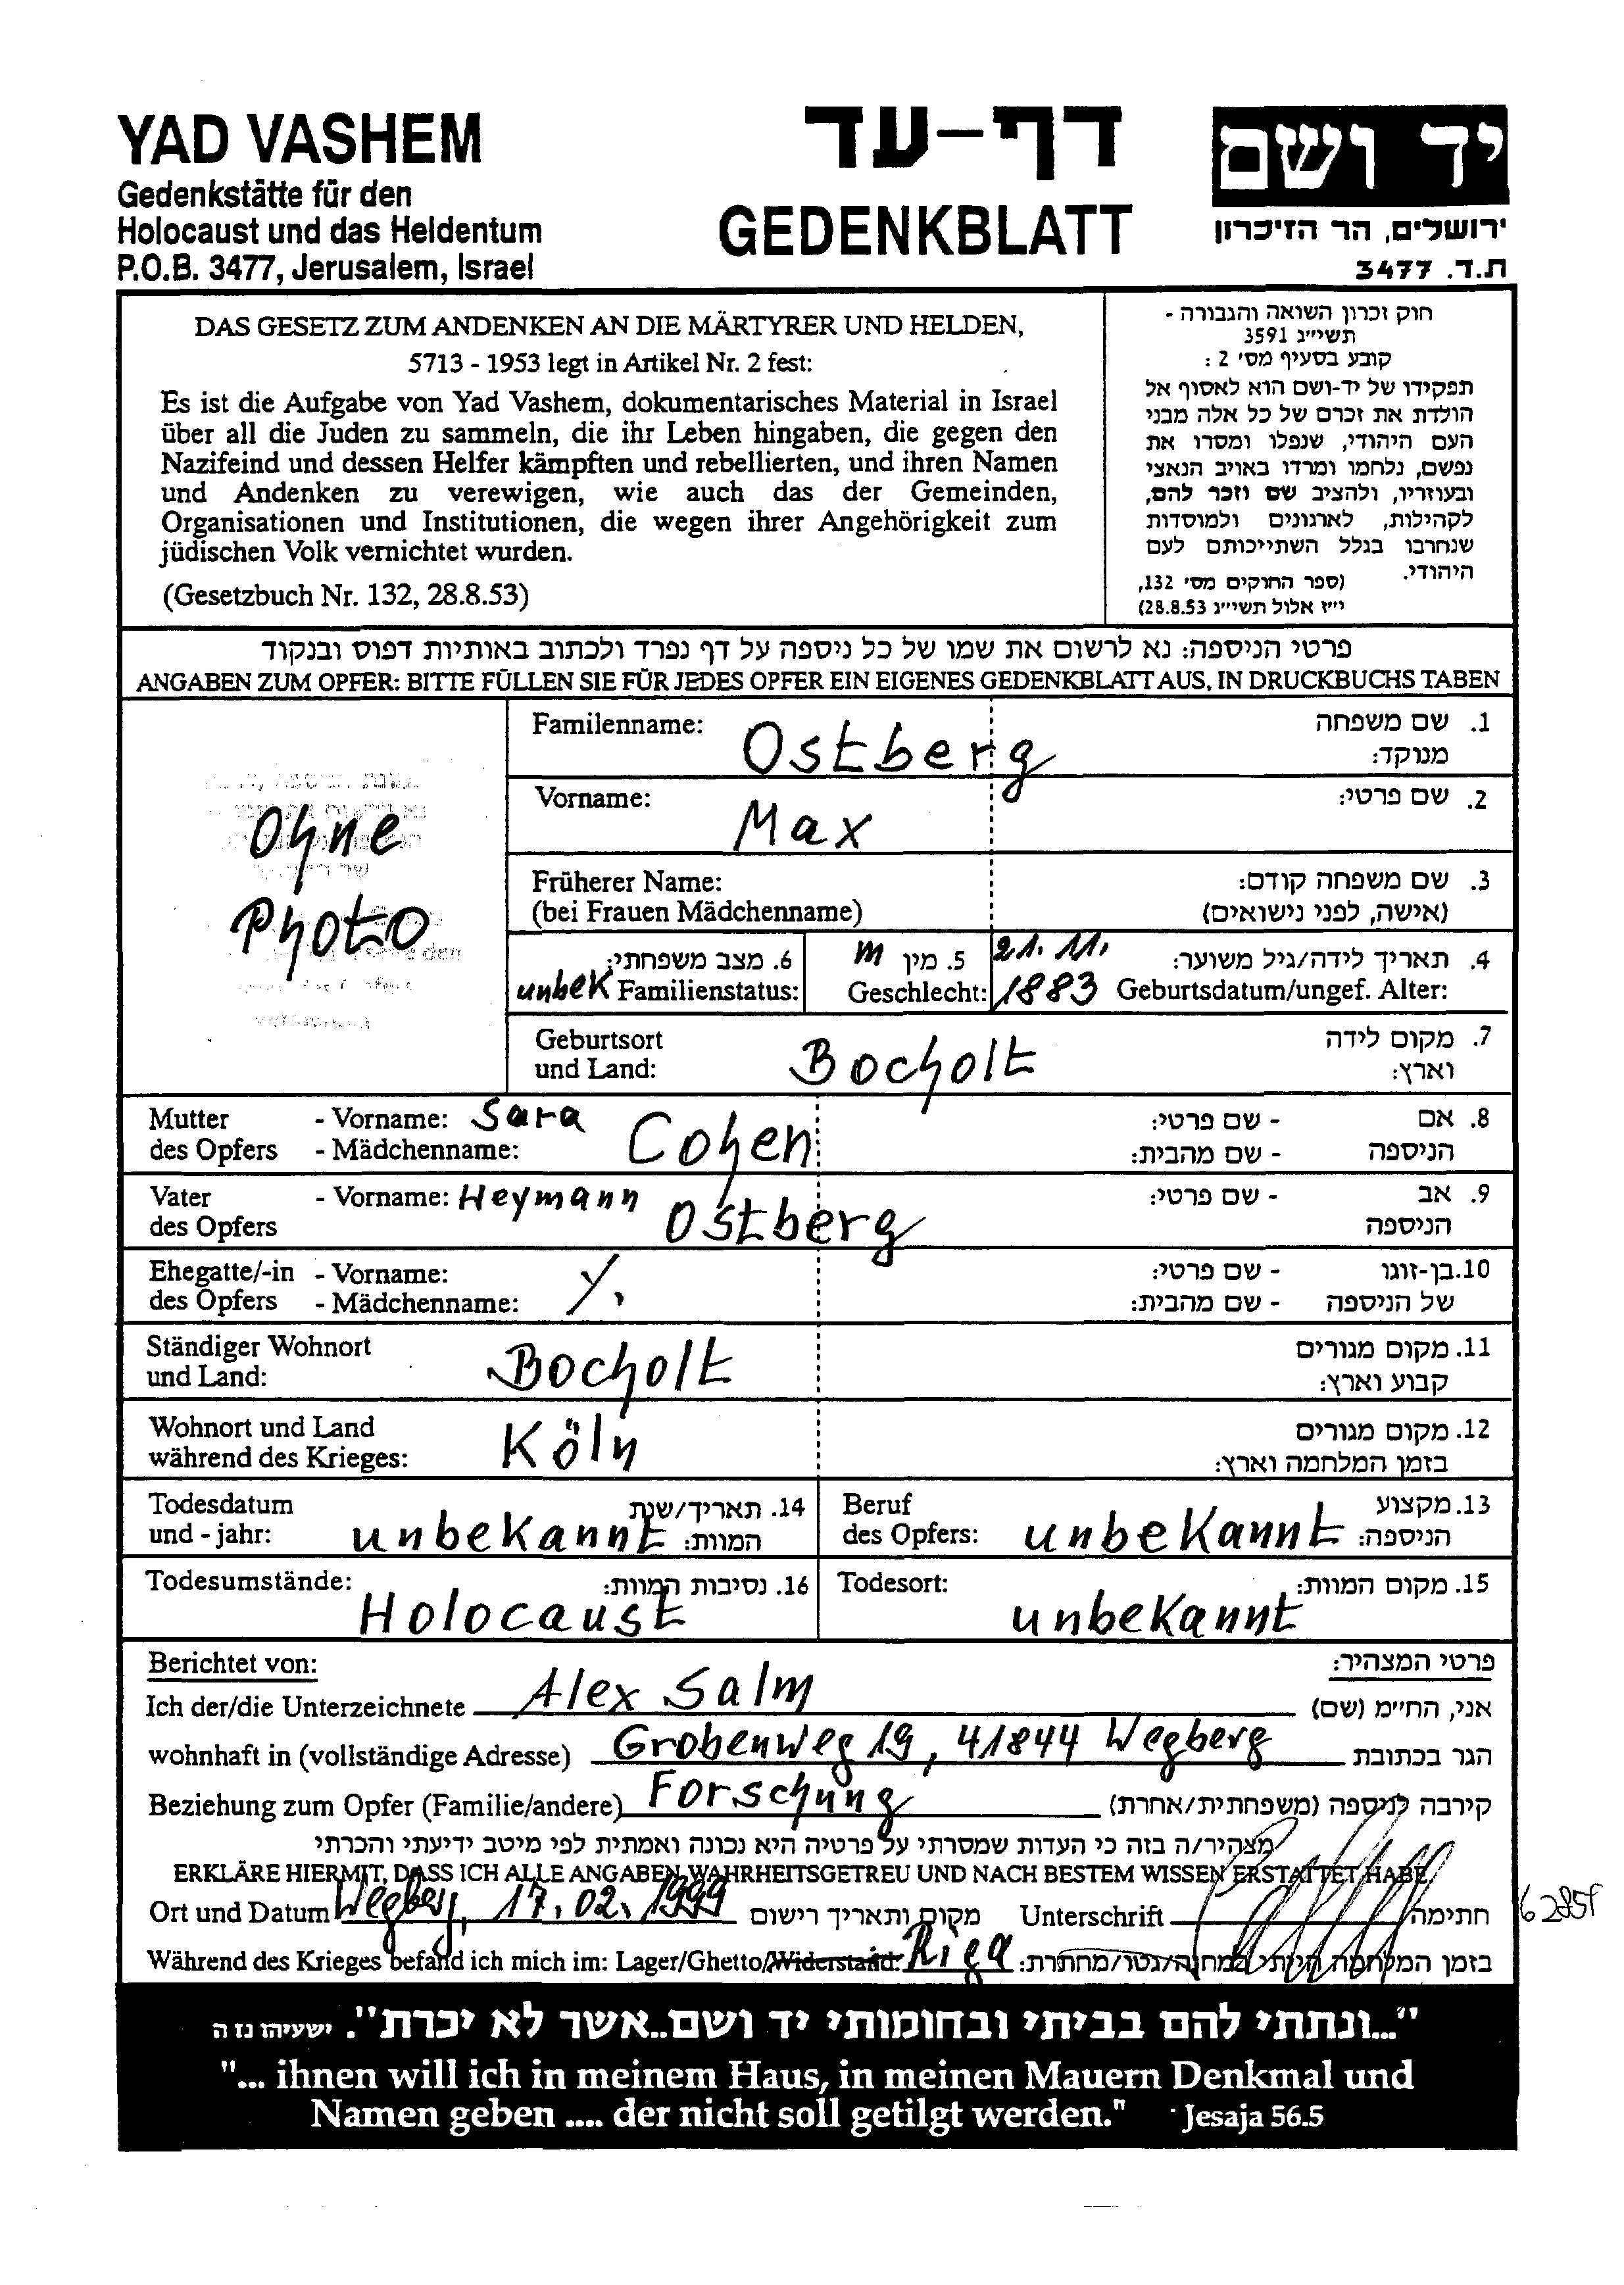 YAD VASHEM
Gedenkstätte für den
Holocaust und das Heldentum
P.O.B. 3477, Jerusalem, Israel
דף-עד
GEDENKBLATT
יד ושם
ירושלים, הר הזיכרון
ת.ד. 3477
DAS GESETZ ZUM ANDENKEN AN DIE MÄRTYRER UND HELDEN,
5713 - 1953 legt in Artikel Nr. 2 fest:
Es ist die Aufgabe von Yad Vashem, dokumentarisches Material in Israel
über all die Juden zu sammeln, die ihr Leben hingaben, die gegen den
Nazifeind und dessen Helfer kämpften und rebellierten, und ihren Namen
und Andenken zu verewigen, wie auch das der Gemeinden,
Organisationen und Institutionen, die wegen ihrer Angehörigkeit zum
jüdischen Volk vernichtet wurden.
(Gesetzbuch Nr. 132, 28.8.53)
חוק זכרון השואה והגבורה -
תשי״ג 3591
קובע בסעיף מס׳ 2 :
תפקידו של יד-ושם הוא לאסוף אל
הולדת את זכרם של כל אלה מבני
העם היהודי, שנפלו ומסרו את
נפשם, נלחמו ומרדו באויב הנאצי
ובעוזריו, ולהציב שם וזכר להם,
לקהילות, לארגונים ולמוסדות
שנחרבו בגלל השתייכותם לעם
היהודי.
(ספר החוקים מס׳ 132,
י״ז אלול תשי״ג 28.8.53)
פרטי הניספה: נא לרשום את שמו של כל ניספה על דף נפרד ולכתוב באותיות דפוס ובנקוד
ANGABEN ZUM OPFER: BITTE FÜLLEN SIE FÜR JEDES OPFER EIN EIGENES GEDENKBLATT AUS, IN DRUCKBUCHS TABEN
Ohne
Photo
Familenname: Ostberg 1. שם משפחה
מנוקד:
Vorname: Max 2. שם פרטי:
Früherer Name: 3. שם משפחה קודם:
(bei Frauen Mädchenname) (אישה, לפני נישואים)
6. מצב משפחתי: 5. מין m 21.11. 4. תאריך לידה/גיל משוער:
unbek Familienstatus: Geschlecht: 1883 Geburtsdatum/ungef. Alter:
Geburtsort 7. מקום לידה
und Land: Bocholt וארץ:
Mutter - Vorname: Sara - שם פרטי: 8. אם
des Opfers - Mädchenname: Cohen - שם מהבית: הניספה
Vater - Vorname: Heymann Ostberg - שם פרטי: 9. אב
des Opfers הניספה
Ehegatte/-in - Vorname: - שם פרטי: 10. בן-זוגו
des Opfers - Mädchenname: ./. - שם מהבית: של הניספה
Ständiger Wohnort 11. מקום מגורים
und Land: Bocholt קבוע וארץ:
Wohnort und Land 12. מקום מגורים
während des Krieges: Köln בזמן המלחמה וארץ:
Todesdatum 14. תאריך/שנת
und - jahr: unbekannt המוות:
Beruf 13. מקצוע
des Opfers: unbekannt הניספה:
Todesumstände: 16. נסיבות המוות:
Holocaust
Todesort: 15. מקום המוות:
unbekannt
Berichtet von: פרטי המצהיר:
Ich der/die Unterzeichnete Alex Salm אני, החי״מ (שם)
wohnhaft in (vollständige Adresse) Grobenweg 19, 41844 Wegberg הגר בכתובת
Beziehung zum Opfer (Familie/andere) Forschung קירבה לניספה (משפחתית/אחרת)
מצהיר/ה בזה כי העדות שמסרתי על פרטיה היא נכונה ואמתית לפי מיטב ידיעתי והכרתי
ERKLÄRE HIERMIT, DASS ICH ALLE ANGABEN WAHRHEITSGETREU UND NACH BESTEM WISSEN ERSTATTET HABE.
Ort und Datum Wegberg, 17.02.1999 מקום ותאריך רישום Unterschrift חתימה
Während des Krieges befand ich mich im: Lager/Ghetto/Widerstand: Riga בזמן המלחמה הייתי במחנה/גטו/מחתרת:
"...ונתתי להם בביתי ובחומותי יד ושם..אשר לא יכרת". ישעיהו נז ה
"... ihnen will ich in meinem Haus, in meinen Mauern Denkmal und
Namen geben .... der nicht soll getilgt werden." Jesaja 56.5